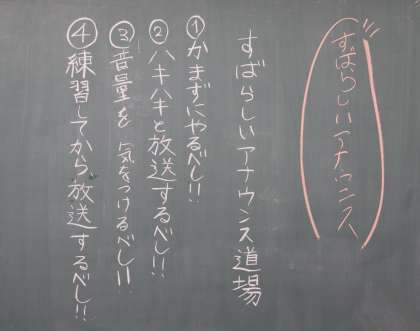 すばらしいアナウンス
すばらしいアナウンス道場
①かまずにやるべし!!
②ハキハキと放送するべし!!
③音量を気をつけるべし!!
④練習してから放送するべし!!